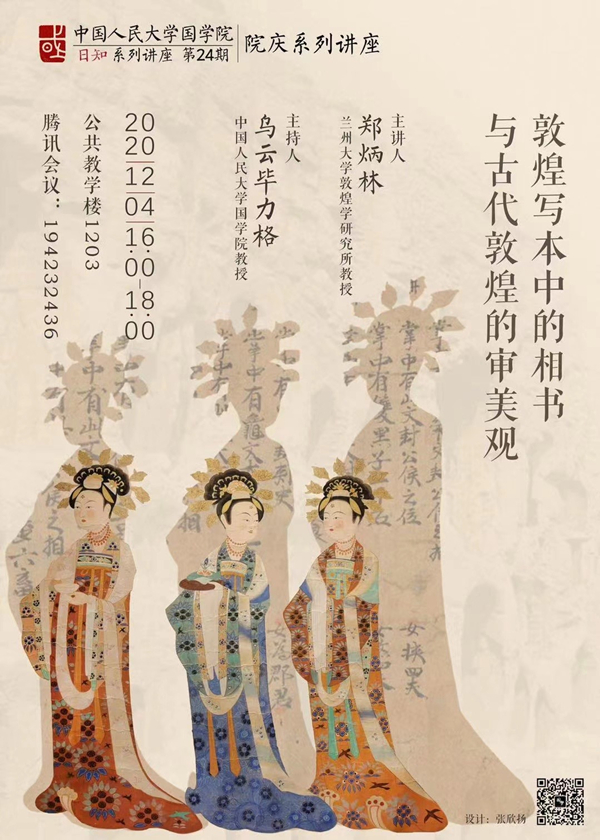 中国人民大学国学院
日知 系列讲座 第24期
院庆系列讲座
敦煌写本中的相书
与古代敦煌的审美观
主讲人
郑炳林
兰州大学敦煌学研究所教授
主持人
乌云毕力格
中国人民大学国学院教授
2020—12—04—16:00—18:00
公共教学楼1203
腾讯会议：194232436
掌中有此文封公侯之位
女挟四夫
设计：张欣扬